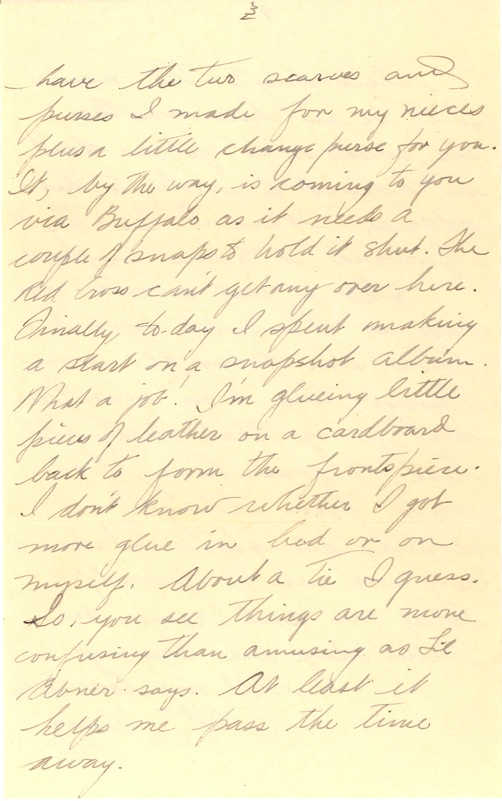 3
have the two scarves and
purses I made for my nieces
plus a little change purse for you.
It, by the way, is coming to you
via Buffalo as it needs a
couple of snaps to hold it shut. The
Red Cross can't get any over here.
Finally, to-day I spent making
a start on a snapshot album.
What a job! I'm glueing little
pieces of leather on a cardboard
back to form the frontspiece.
I don't know whether I got
more glue in bed or on
myself. About a tie I guess.
So, you see things are more
confusing than amusing as Lil
Abner says. At least it
helps me pass the time
away.